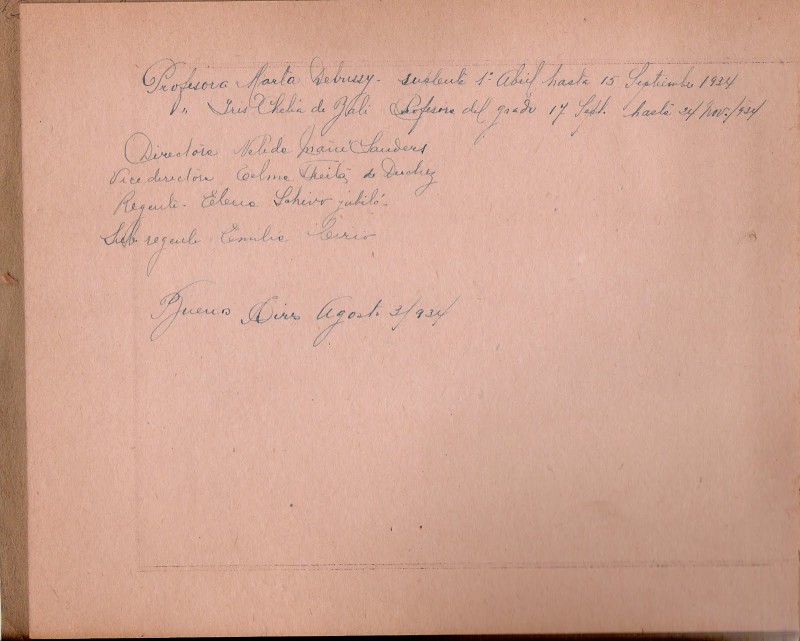 Profesora Marta Debussy. suplente 1º Abril hasta 15 Septiembre 1934
" Iris Thelia de Yali Profesora del grado 17 Sept. hasta 24 Nov./934
Directora Nelida Sanders
Vice directora Celma de Duchez
Regente. Elena Schivo jubiló.
Sub regente Emilia
Buenos Aires Agosto 3/934